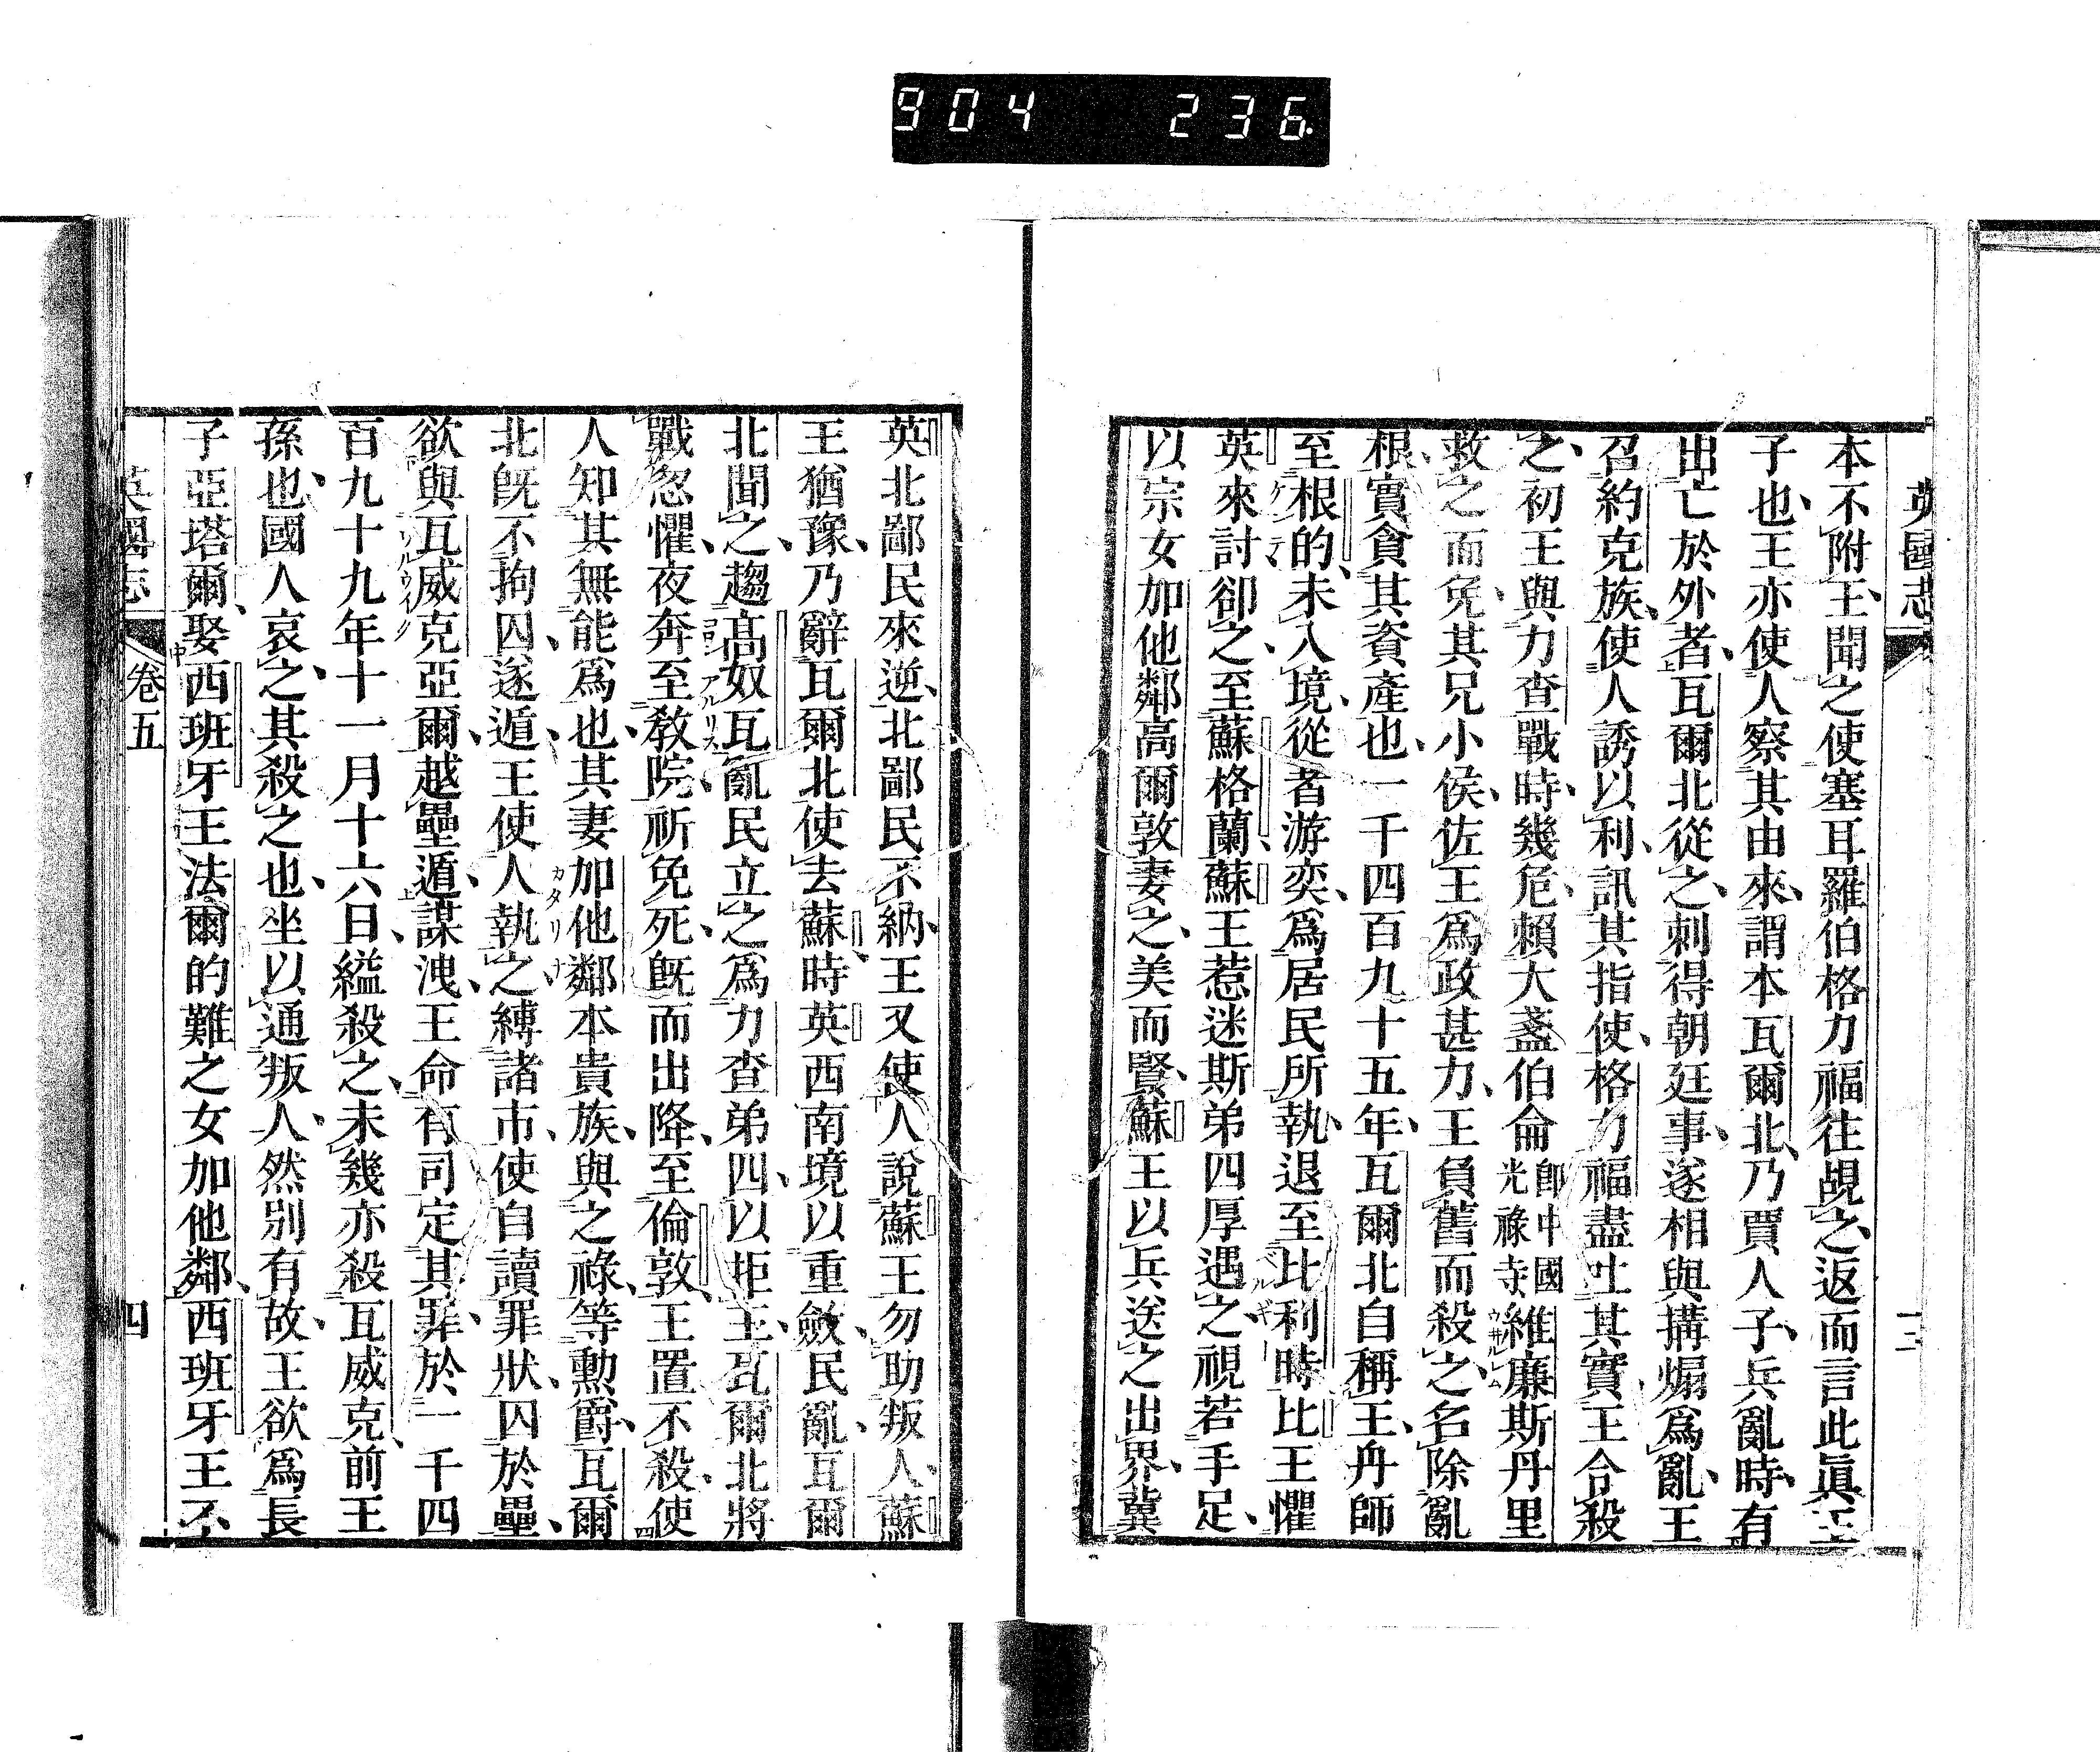 904 236
英國志
本不附王、聞之使塞耳羅伯格力福往覘之、返而言此眞王
子也、王亦使人察其由來、謂本瓦爾北、乃賈人子、兵亂時、有
出亡於外者、瓦爾北從之、刺得朝廷事、遂相與搆煽爲亂、王
召約克族、使人誘以利、訊其指使、格力福盡吐其實、王令殺
之、初王與力查戰時、幾危、賴大盞伯侖卽中國光祿寺維廉斯丹里
救之而免、其兄小侯、佐王爲政甚力、王負舊而殺之、名除亂
根、實貪其資產也、一千四百九十五年、瓦爾北自稱王、舟師
至根的、未入境、從者游奕、爲居民所執、退至比利時、比王懼
英來討、卻之、至蘇格蘭、蘇王惹迷斯弟四厚遇之、視若手足、
以宗女加他鄰高爾敦妻之、美而賢、蘇王以兵送之出界、冀
英北鄙民來逆、北鄙民不納、王又使人說蘇王勿助叛人、蘇
王猶豫、乃辭瓦爾北使去蘇、時英西南境以重斂民亂、瓦爾
北聞之、趨高奴瓦、亂民立之爲力查弟四、以拒王、瓦爾北將
戰忽懼、夜奔至敎院、祈免死、旣而出降、至倫敦、王置不殺、使
人知其無能爲也、其妻加他鄰本貴族、與之祿、等勳爵、瓦爾
北旣不拘囚、遂遁、王使人執之縛諸市、使自讀罪狀、囚於壘、
欲與瓦威克亞爾、越壘遁、謀洩、王命有司定其罪、於一千四
百九十九年十一月十六日、縊殺之、未幾亦殺瓦威克、前王
孫也、國人哀之、其殺之也、坐以通叛人、然別有故、王欲爲長
子亞塔爾、娶西班牙王法爾的難之女加他鄰、西班牙王不
英國志 卷五 四